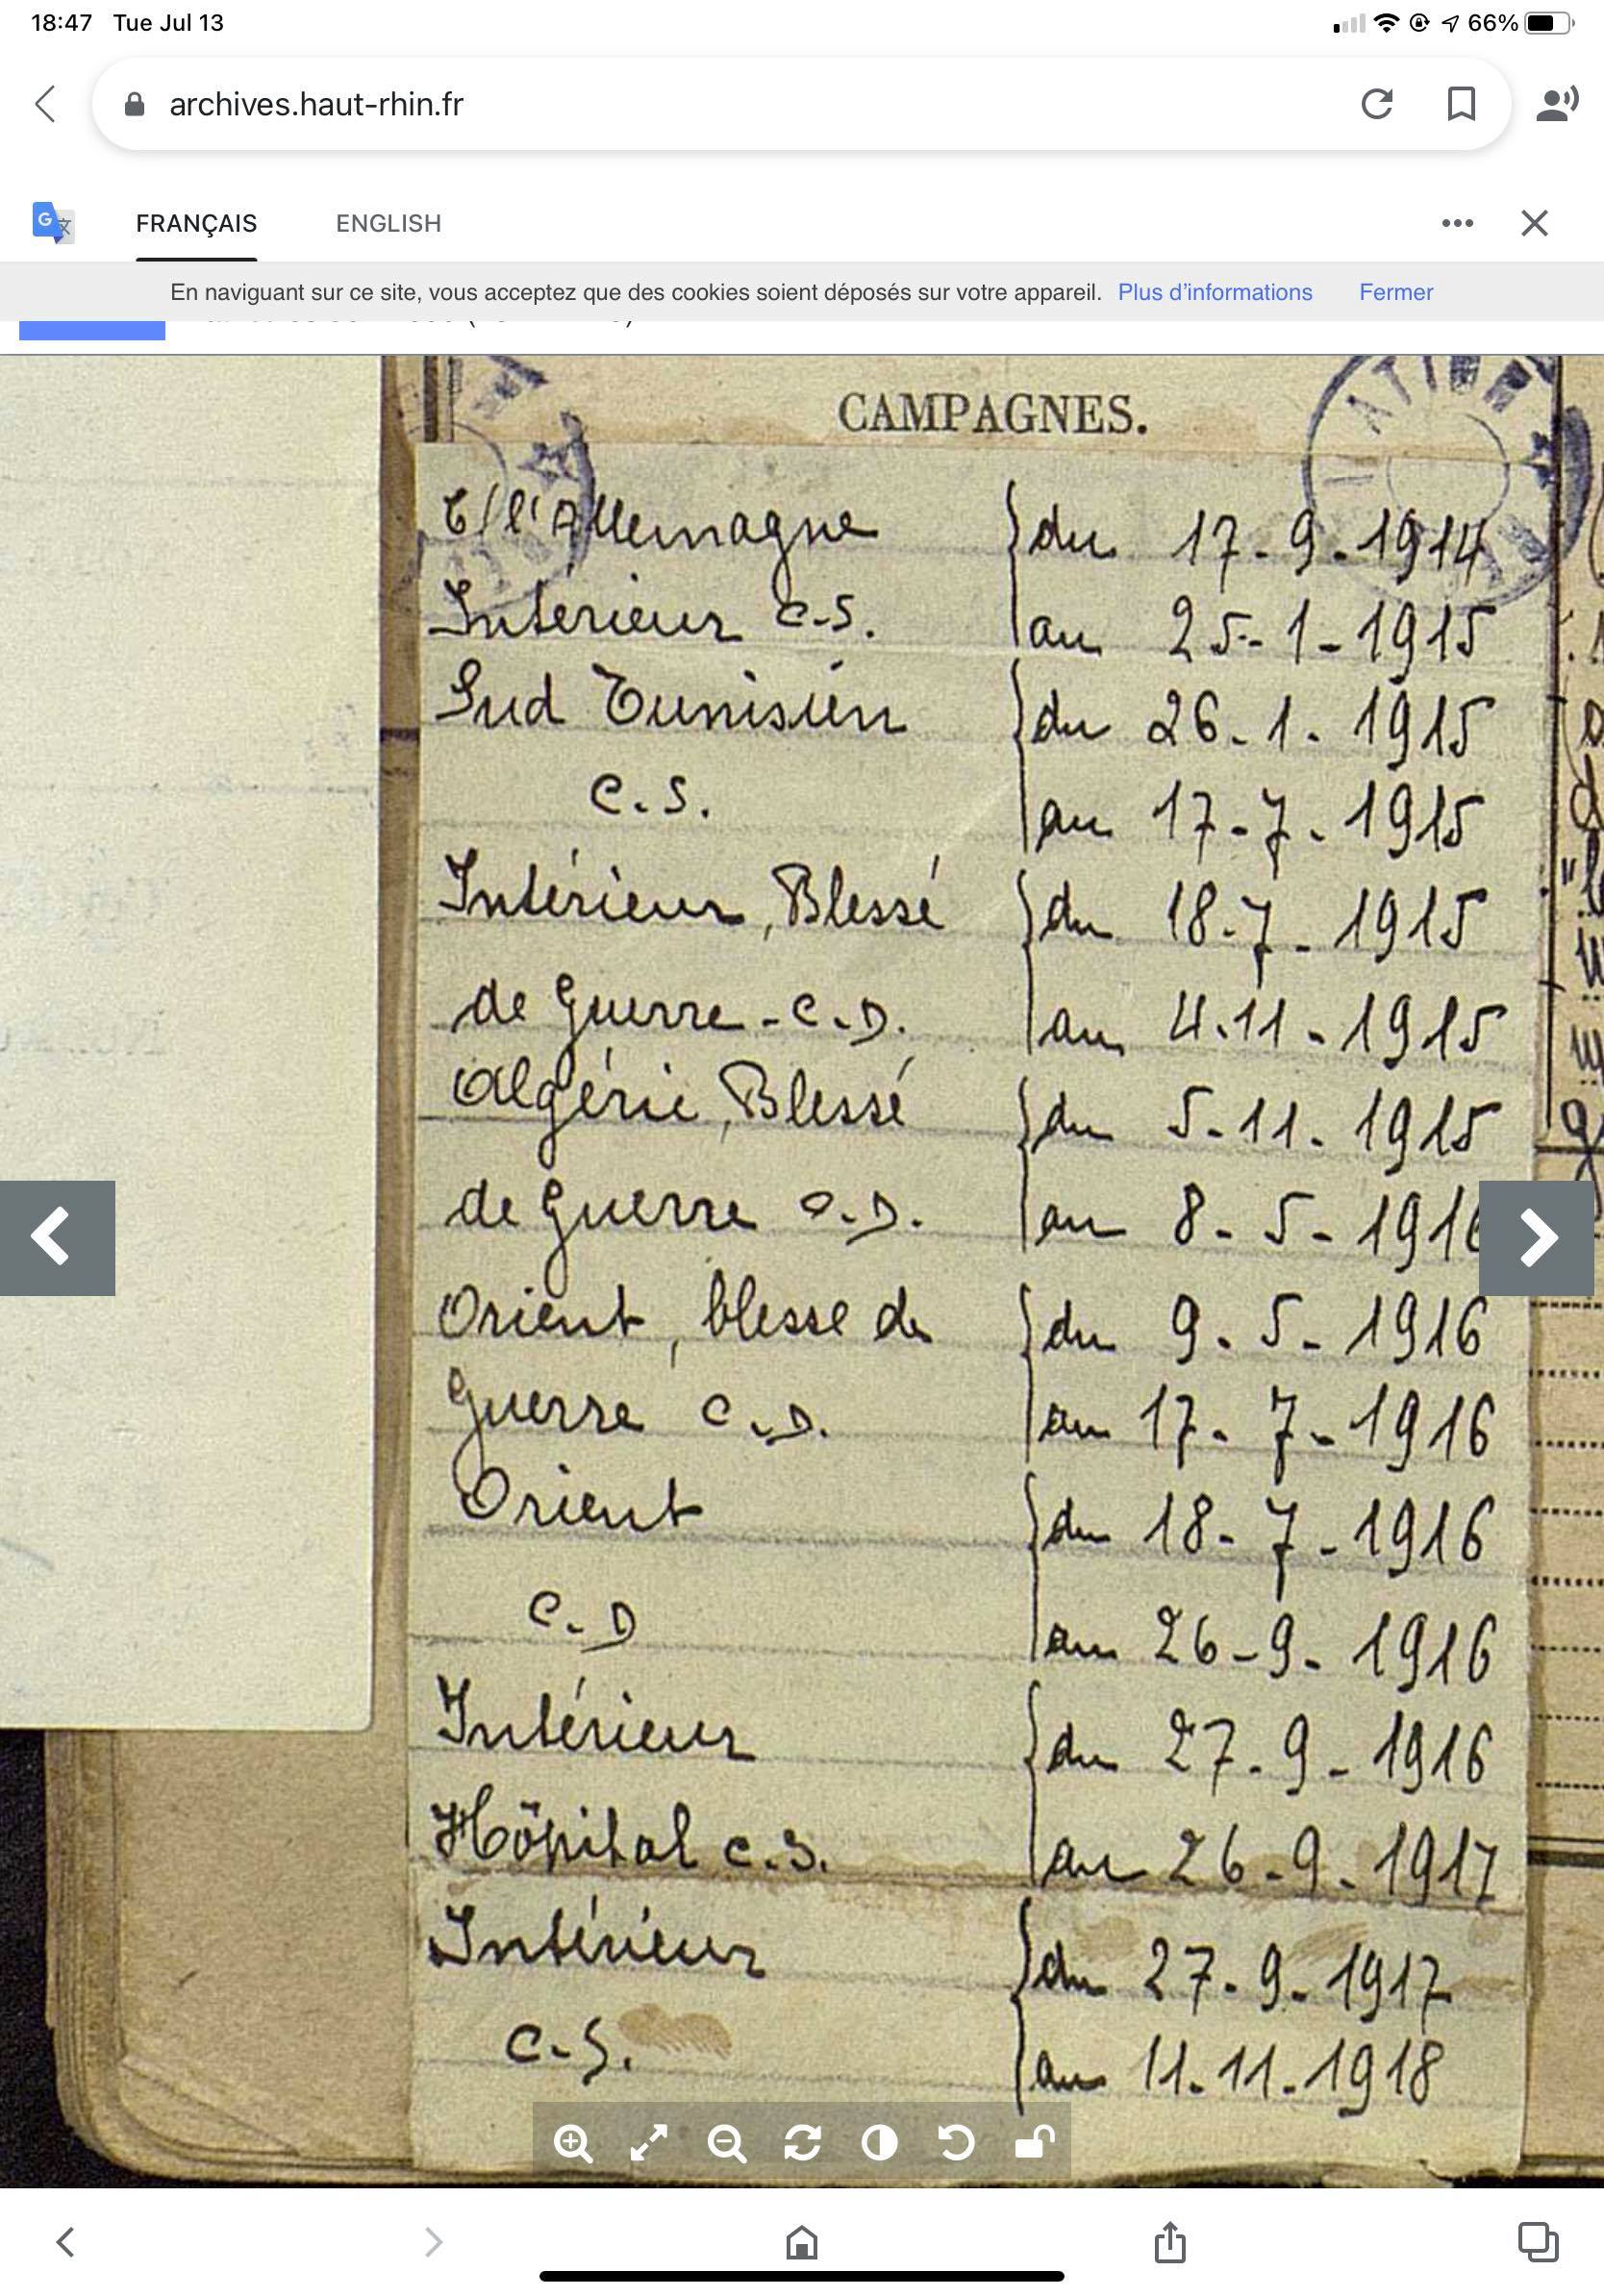 18:47 Tue Jul 13 66%
archives.haut-rhin.fr
FRANÇAIS ENGLISH
En naviguant sur ce site, vous acceptez que des cookies soient déposés sur votre appareil. Plus d'informations Fermer
CAMPAGNES.
C/l'Allemagne du 17-9-1914
Intérieur C.S. au 25-1-1915
Sud Tunisien du 26-1-1915
C.S. au 17-7-1915
Intérieur, Blessé du 18-7-1915
de Guerre-C.D. au 4-11-1915
Algérie, Blessé du 5-11-1915
de Guerre C.D. au 8-5-1916
Orient, blessé de du 9-5-1916
Guerre C.D. au 17-7-1916
Orient du 18-7-1916
C.D au 26-9-1916
Intérieur du 27-9-1916
Hôpital C.S. au 26-9-1917
Intérieur du 27-9-1917
C.S. au 11-11-1918